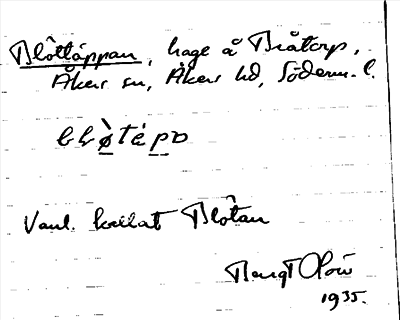 Blôttäppan, hage å Bråtorp,
Åkers sn, Åkers hd, Söderm. l.
Vanl. kallat Blôtan
Bengt Olow
1935.